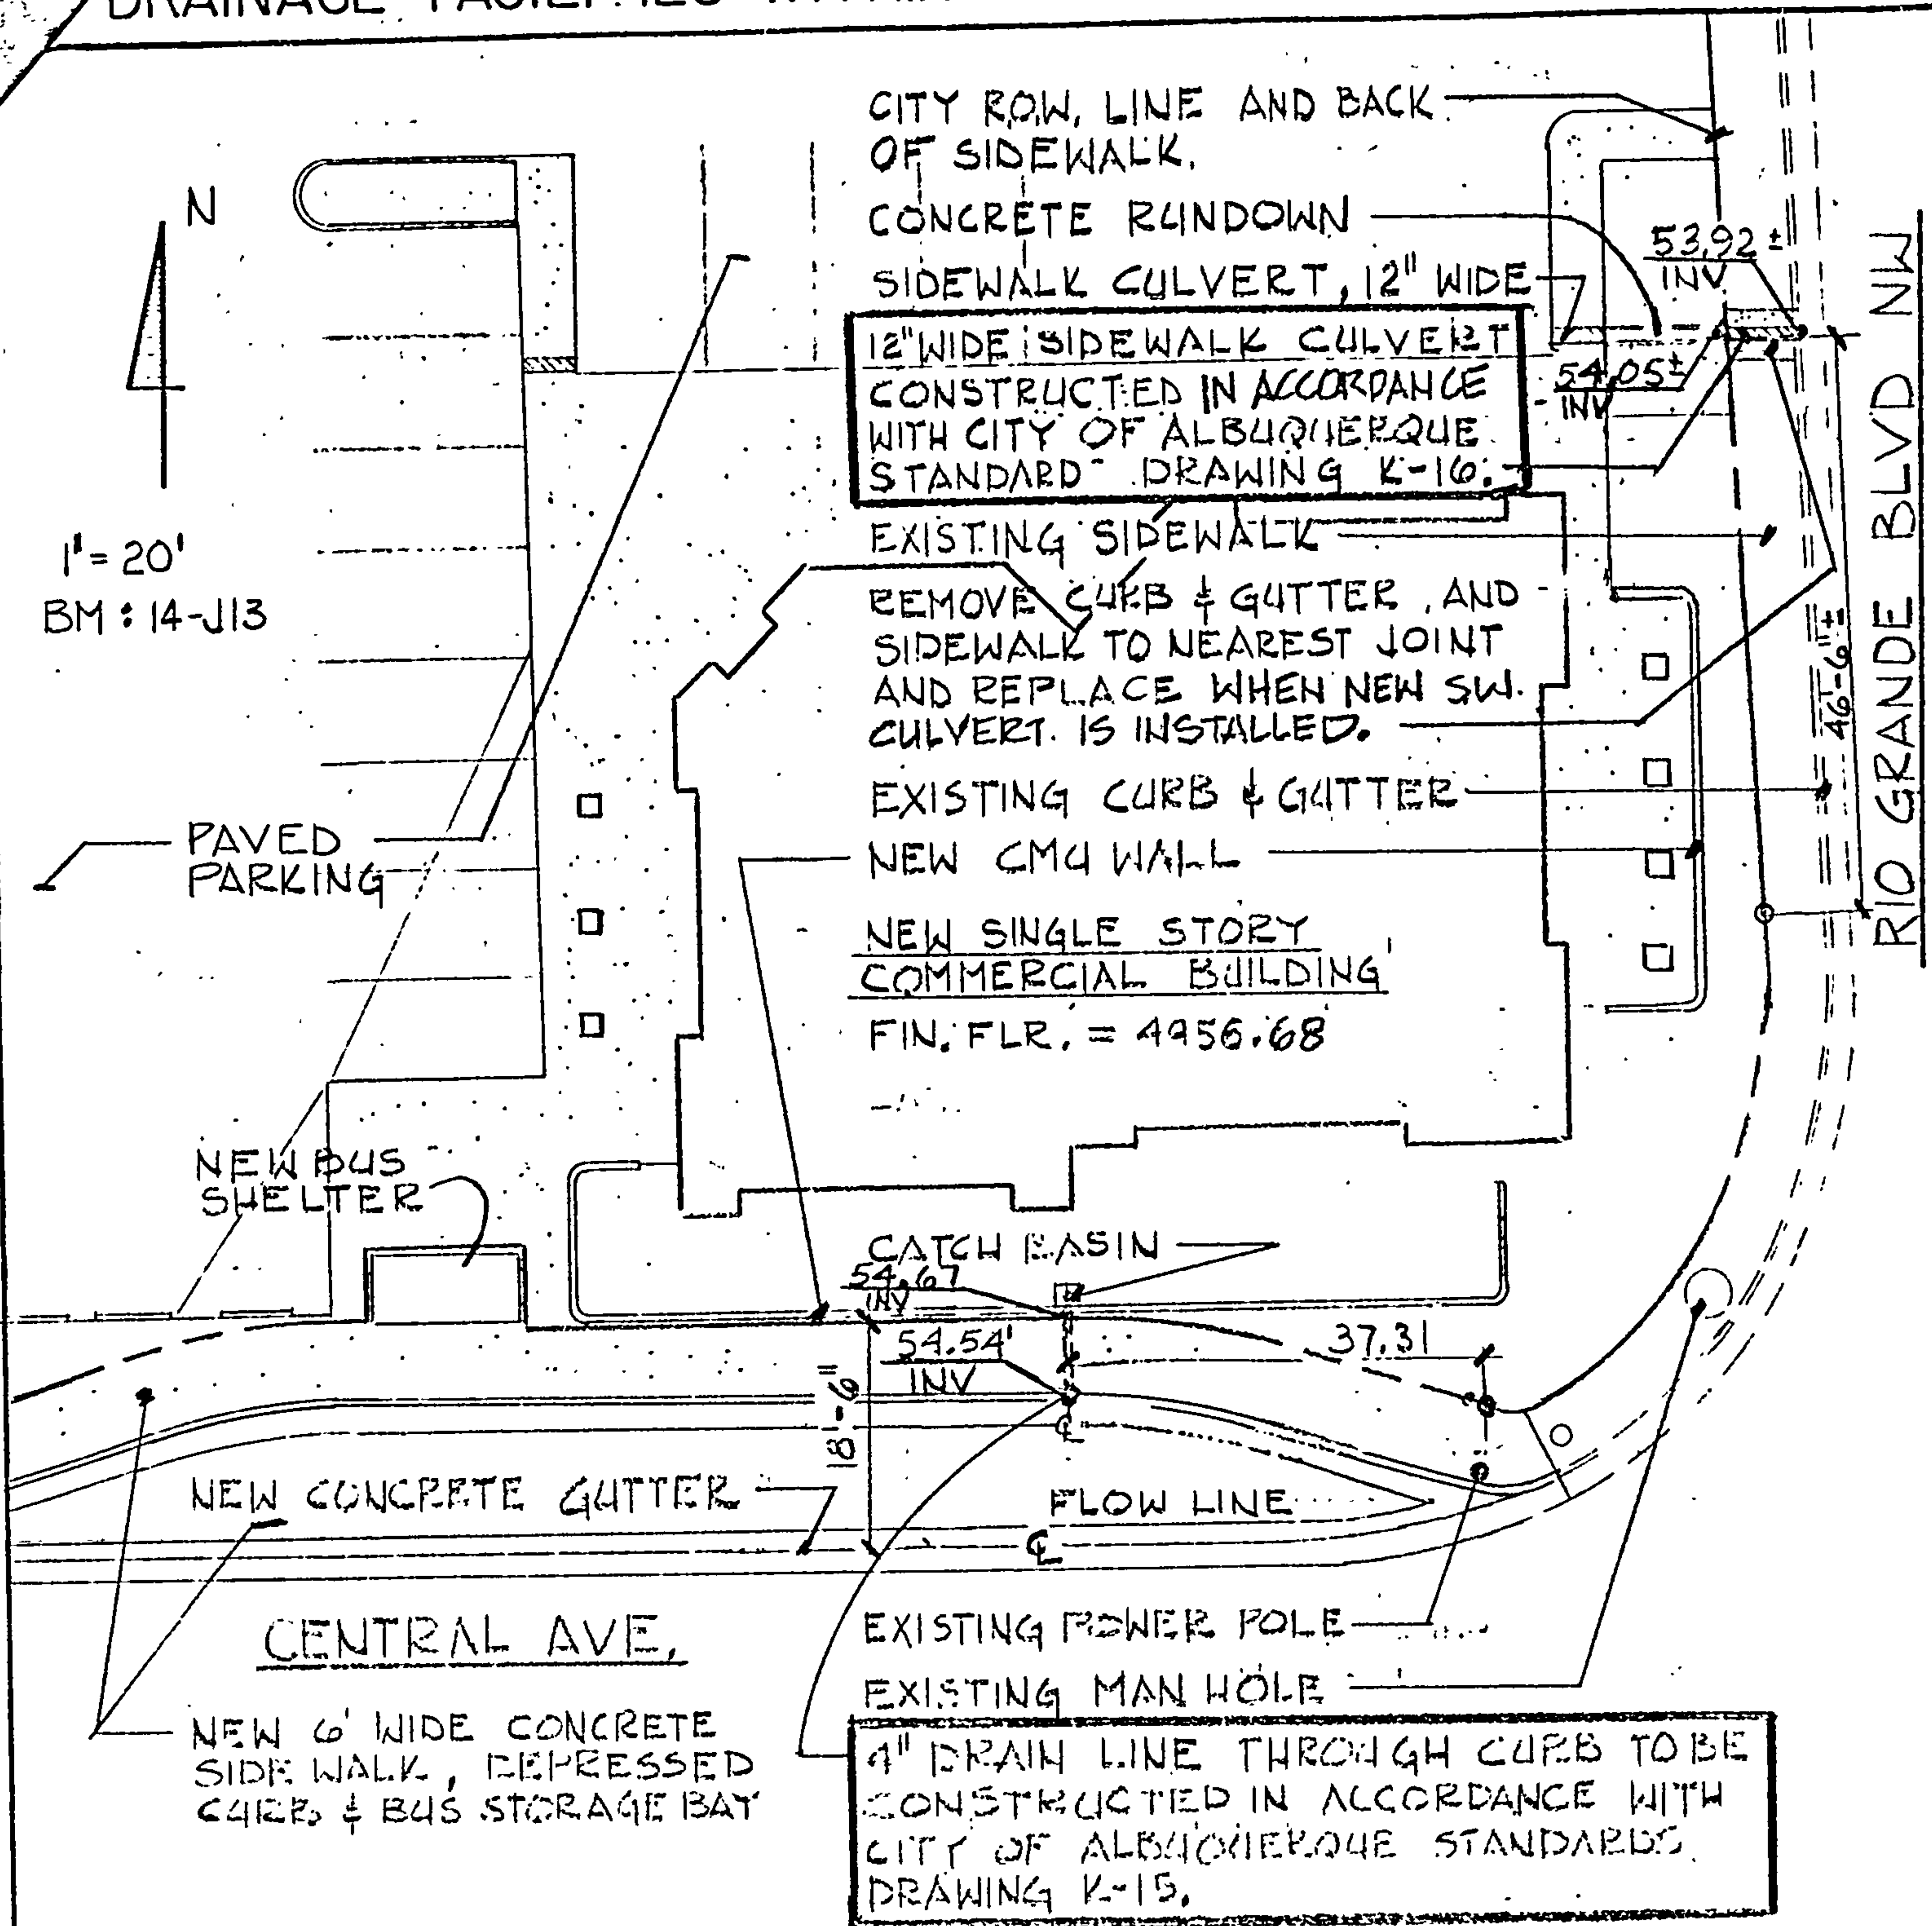 DRAINAGE FACILITIES WITHIN
CITY R.O.W. LINE AND BACK
OF SIDEWALK.
CONCRETE RUNDOWN
SIDEWALK CULVERT, 12" WIDE
12" WIDE SIDEWALK CULVERT
CONSTRUCTED IN ACCORDANCE
WITH CITY OF ALBUQUERQUE
STANDARD DRAWING K-16.
53.92 ±
INV
54.05±
INV
N
1" = 20'
BM : 14-J13
EXISTING SIDEWALK
REMOVE CURB & GUTTER, AND
SIDEWALK TO NEAREST JOINT
AND REPLACE WHEN NEW SW.
CULVERT. IS INSTALLED.
EXISTING CURB & GUTTER
NEW CMU WALL
NEW SINGLE STORY
COMMERCIAL BUILDING
FIN. FLR. = 4956.68
46'-6"±
RIO GRANDE BLVD NW
PAVED
PARKING
NEW BUS
SHELTER
CATCH BASIN
54.67
INV
54.54'
INV
37.31
18'-6"
℄
NEW CONCRETE GUTTER
FLOW LINE
℄
CENTRAL AVE.
EXISTING POWER POLE
EXISTING MAN HOLE
NEW 6' WIDE CONCRETE
SIDE WALK, DEPRESSED
CURB & BUS STORAGE BAY
4" DRAIN LINE THROUGH CURB TO BE
CONSTRUCTED IN ACCORDANCE WITH
CITY OF ALBUQUERQUE STANDARDS
DRAWING K-15.